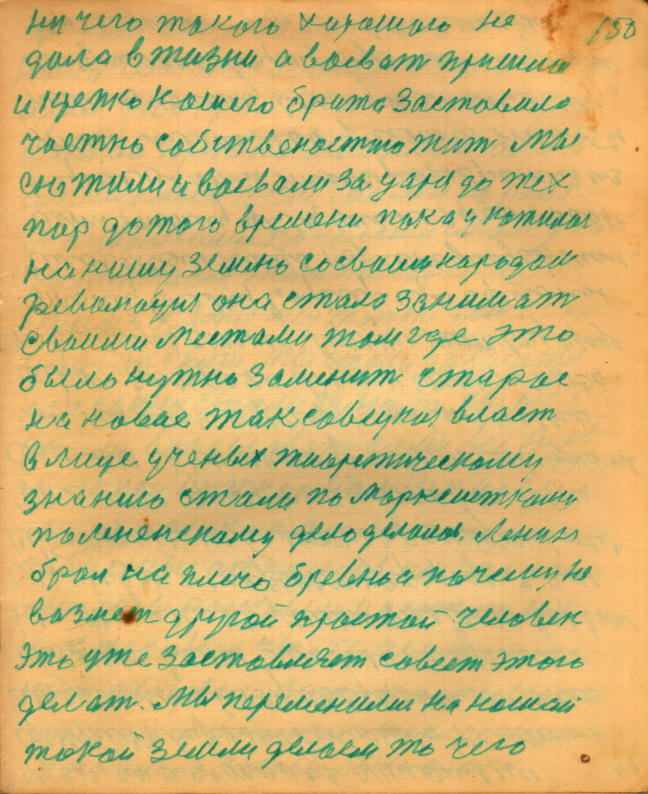 150
ни чего такого хорошого не
дала в жизни а воеват пришлось
и крепко нашего брата заставило
частно собственостю жит мы
жили и воевали за царя до тех
пор до того времени пока у
на нашу землю со своим народом
революция она стала занимат
своими местами там где это
было нужно заменит старое
на новае так совецкая власт
в лице ученых тиоретическому
знанию стали по Марксисткому
по ленепскому дело делат. Ленин
брал на плечо бревно а почему не
возмет другой простой человек
Это уже заставляет совест этого
делат. Мы переменили на нашай
такой земли делаем то чего